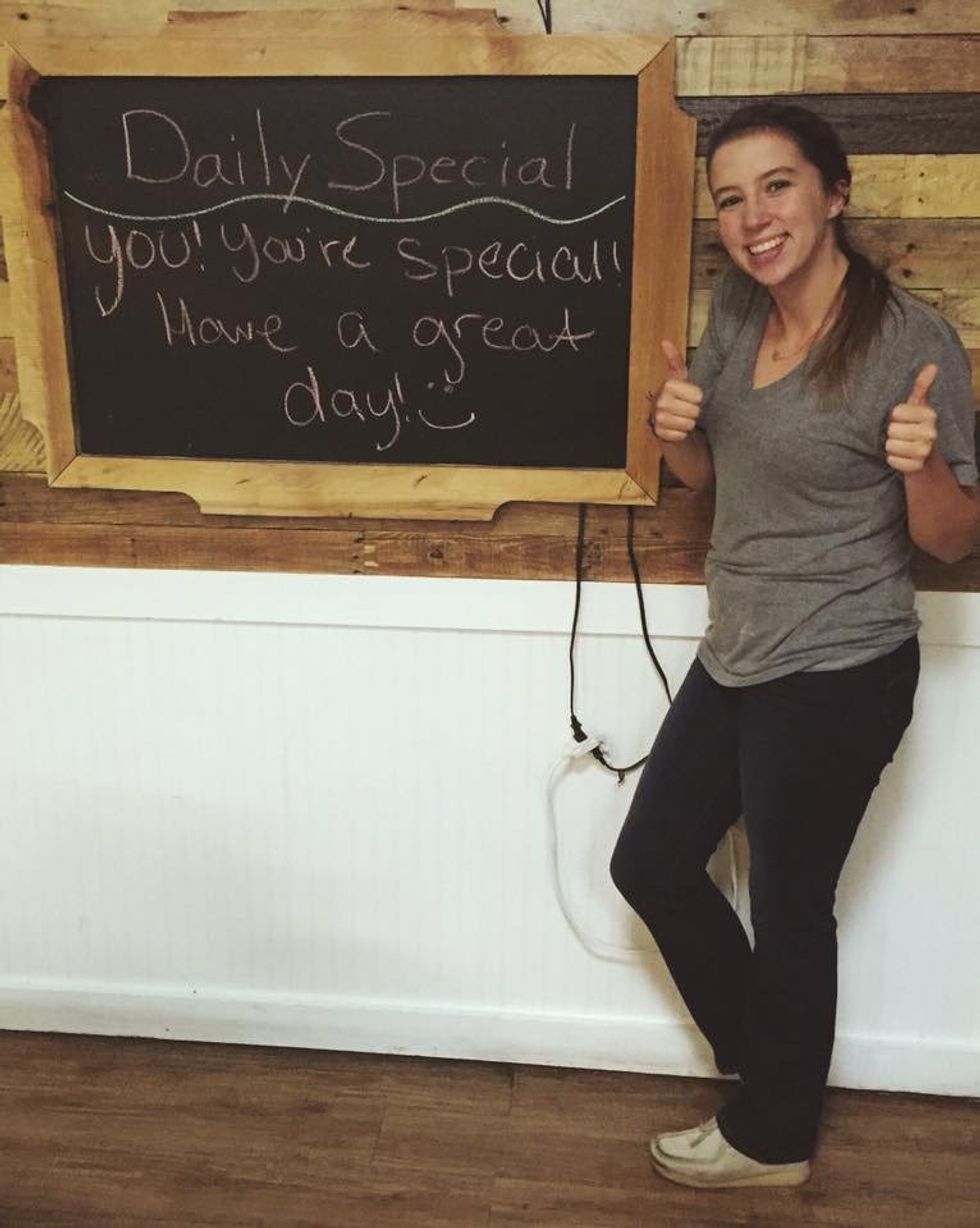 Daily Special
you! You're special!
Have a great
day! :)